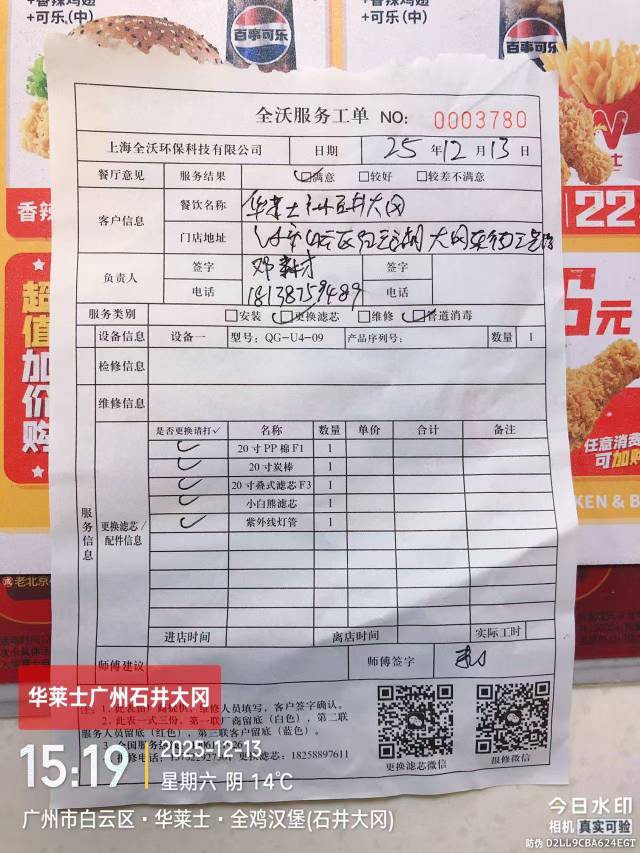 +香辣鸡翅
+可乐(中)
+可乐(中)
百事可乐
百事可乐
全沃服务工单 NO: 0003780
上海全沃环保科技有限公司 日期 25年12月13日
餐厅意见 服务结果 ☑满意 □较好 □较差不满意
客户信息 餐饮名称 华莱士 石井大冈
门店地址 白云区 大冈
负责人 签字 签字
电话 18138759489 电话
服务类别 □安装 ☑更换滤芯 □维修 ☑管道消毒
设备信息 设备一 型号: QG-U4-09 产品序列号: 数量 1
检修信息
维修信息
服务信息 更换滤芯/配件信息
是否更换请打✓ 名称 数量 单价 合计 备注
✓ 20寸PP棉F1 1
✓ 20寸炭棒 1
✓ 20寸叠式滤芯F3 1
✓ 小白熊滤芯 1
✓ 紫外线灯管 1
进店时间 离店时间 实际工时
师傅建议 师傅签字
维修人员填写,客户签字确认。
2. 此表一式三份。第一联厂商留底(白色),第二联
服务人员留底(红色),第三联客户留底(蓝色)。
18258897611
更换滤芯微信 报修微信
香辣
超值加价购
老北京
22
元
任意消费
可加购
KEN & B
华莱士广州石井大冈
15:19 2025-12-13
星期六 阴 14℃
广州市白云区·华莱士·全鸡汉堡(石井大冈)
今日水印
相机 真实可验
防伪 D2LL9CBA624EGT